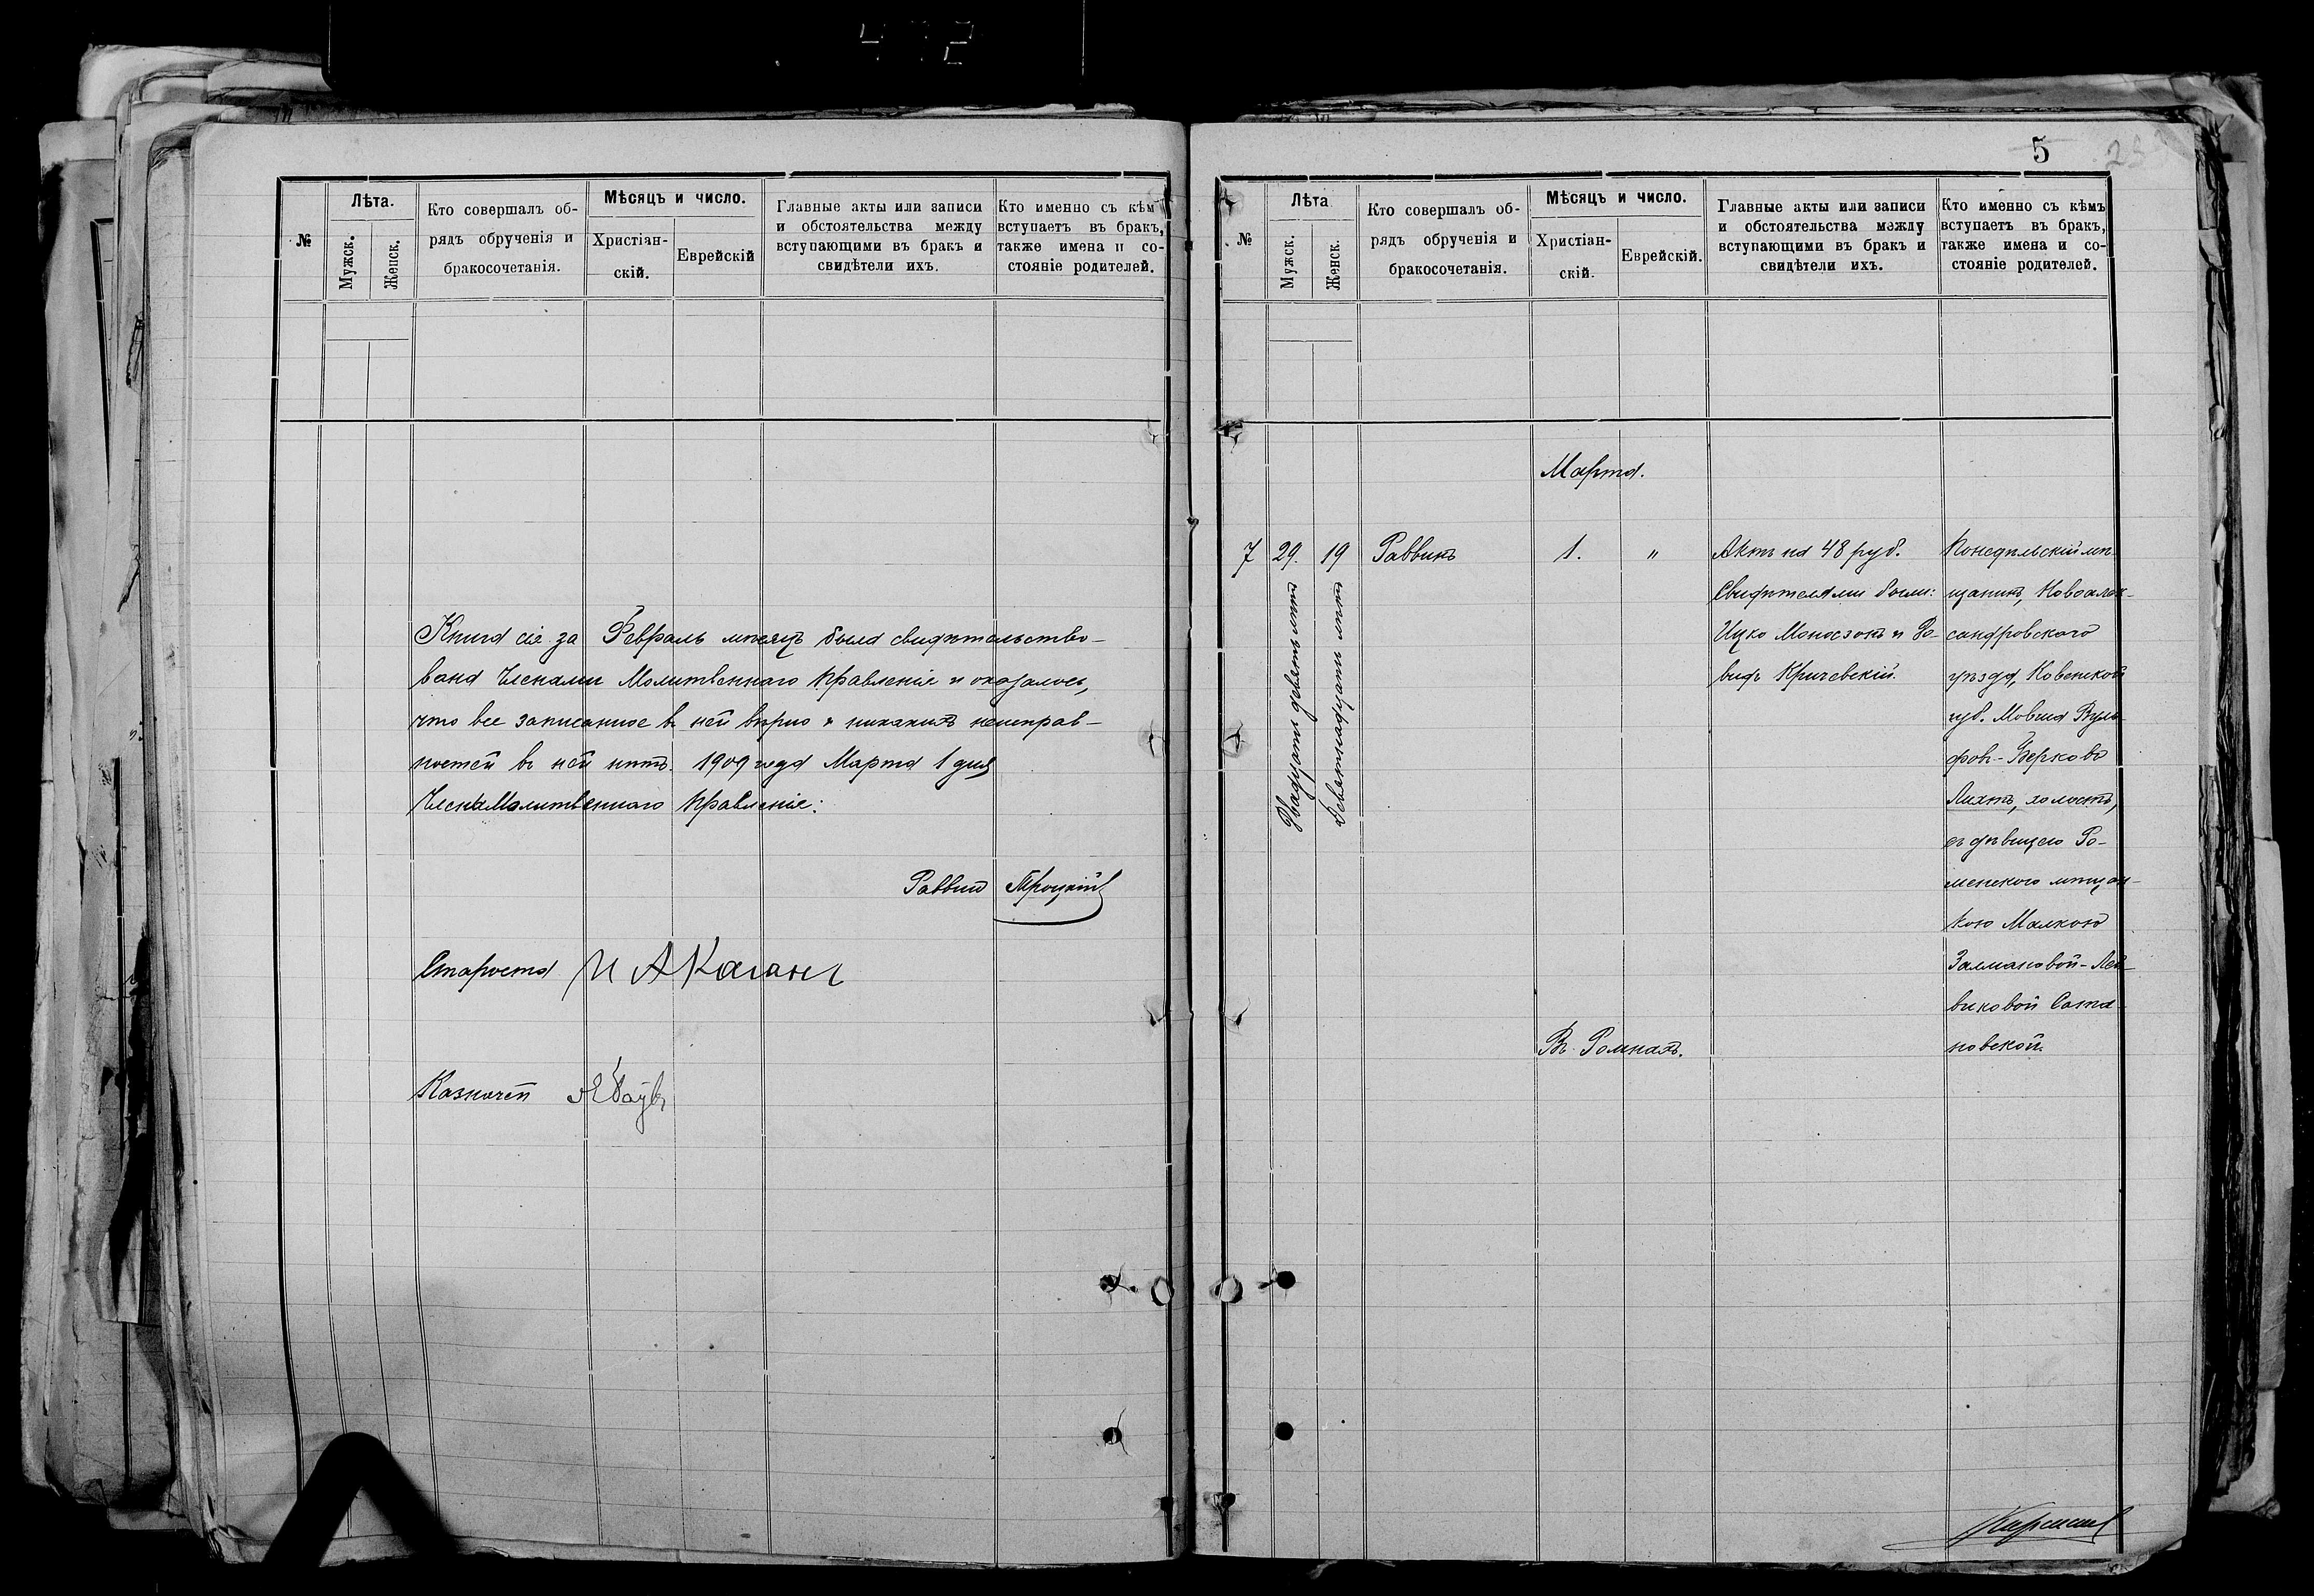 №
Лѣта.
Мужск.
Женск.
Кто совершалъ об-
рядъ обрученія и
бракосочетанія.
Мѣсяцъ и число.
Христіан-
скій.
Еврейскій
Главные акты или записи
и обстоятельства между
вступающими въ бракъ и
свидѣтели ихъ.
Кто именно съ кѣмъ
вступаетъ въ бракъ,
также имена и со-
стояніе родителей.
Книга сія за Февраль мѣсяцъ была свидѣтельство-
вана Членами Молитвеннаго Правленія и оказалось,
что все записанное въ ней вѣрно и никакихъ неисправ-
ностей въ ней нѣтъ. 1909 года Марта 1 дня
Члены Молитвеннаго Правленія:
Раввин Троцкій
Староста И А Каганъ
Казначей
5
№
Лѣта
Мужск.
Женск.
Кто совершалъ об-
рядъ обрученія и
бракосочетанія.
Мѣсяцъ и число.
Христіан-
скій.
Еврейскій.
Главные акты или записи
и обстоятельства между
вступающими въ бракъ и
свидѣтели ихъ.
Кто именно съ кѣмъ
вступаетъ въ бракъ,
также имена и со-
стояніе родителей.
Марта.
7
29.
Двадцать девять лѣтъ
19
Девятнадцать лѣтъ
Раввинъ
1.
"
Актъ на 48 руб.
Свидѣтелями были:
Ицко Моносзонъ и До-
видъ Кричевскій.
Понедѣльскій мѣ-
щанинъ, Новоалек-
сандровскаго
уѣзда, Ковенской
губ. Мовша Вуль-
фовъ-Берковъ
Лихтъ, холостъ,
съ дѣвицею Ро-
менскою мѣщан-
кою Малкою
Залмановой-Лей-
виковой Сата-
новской.
Въ Ромнахъ.